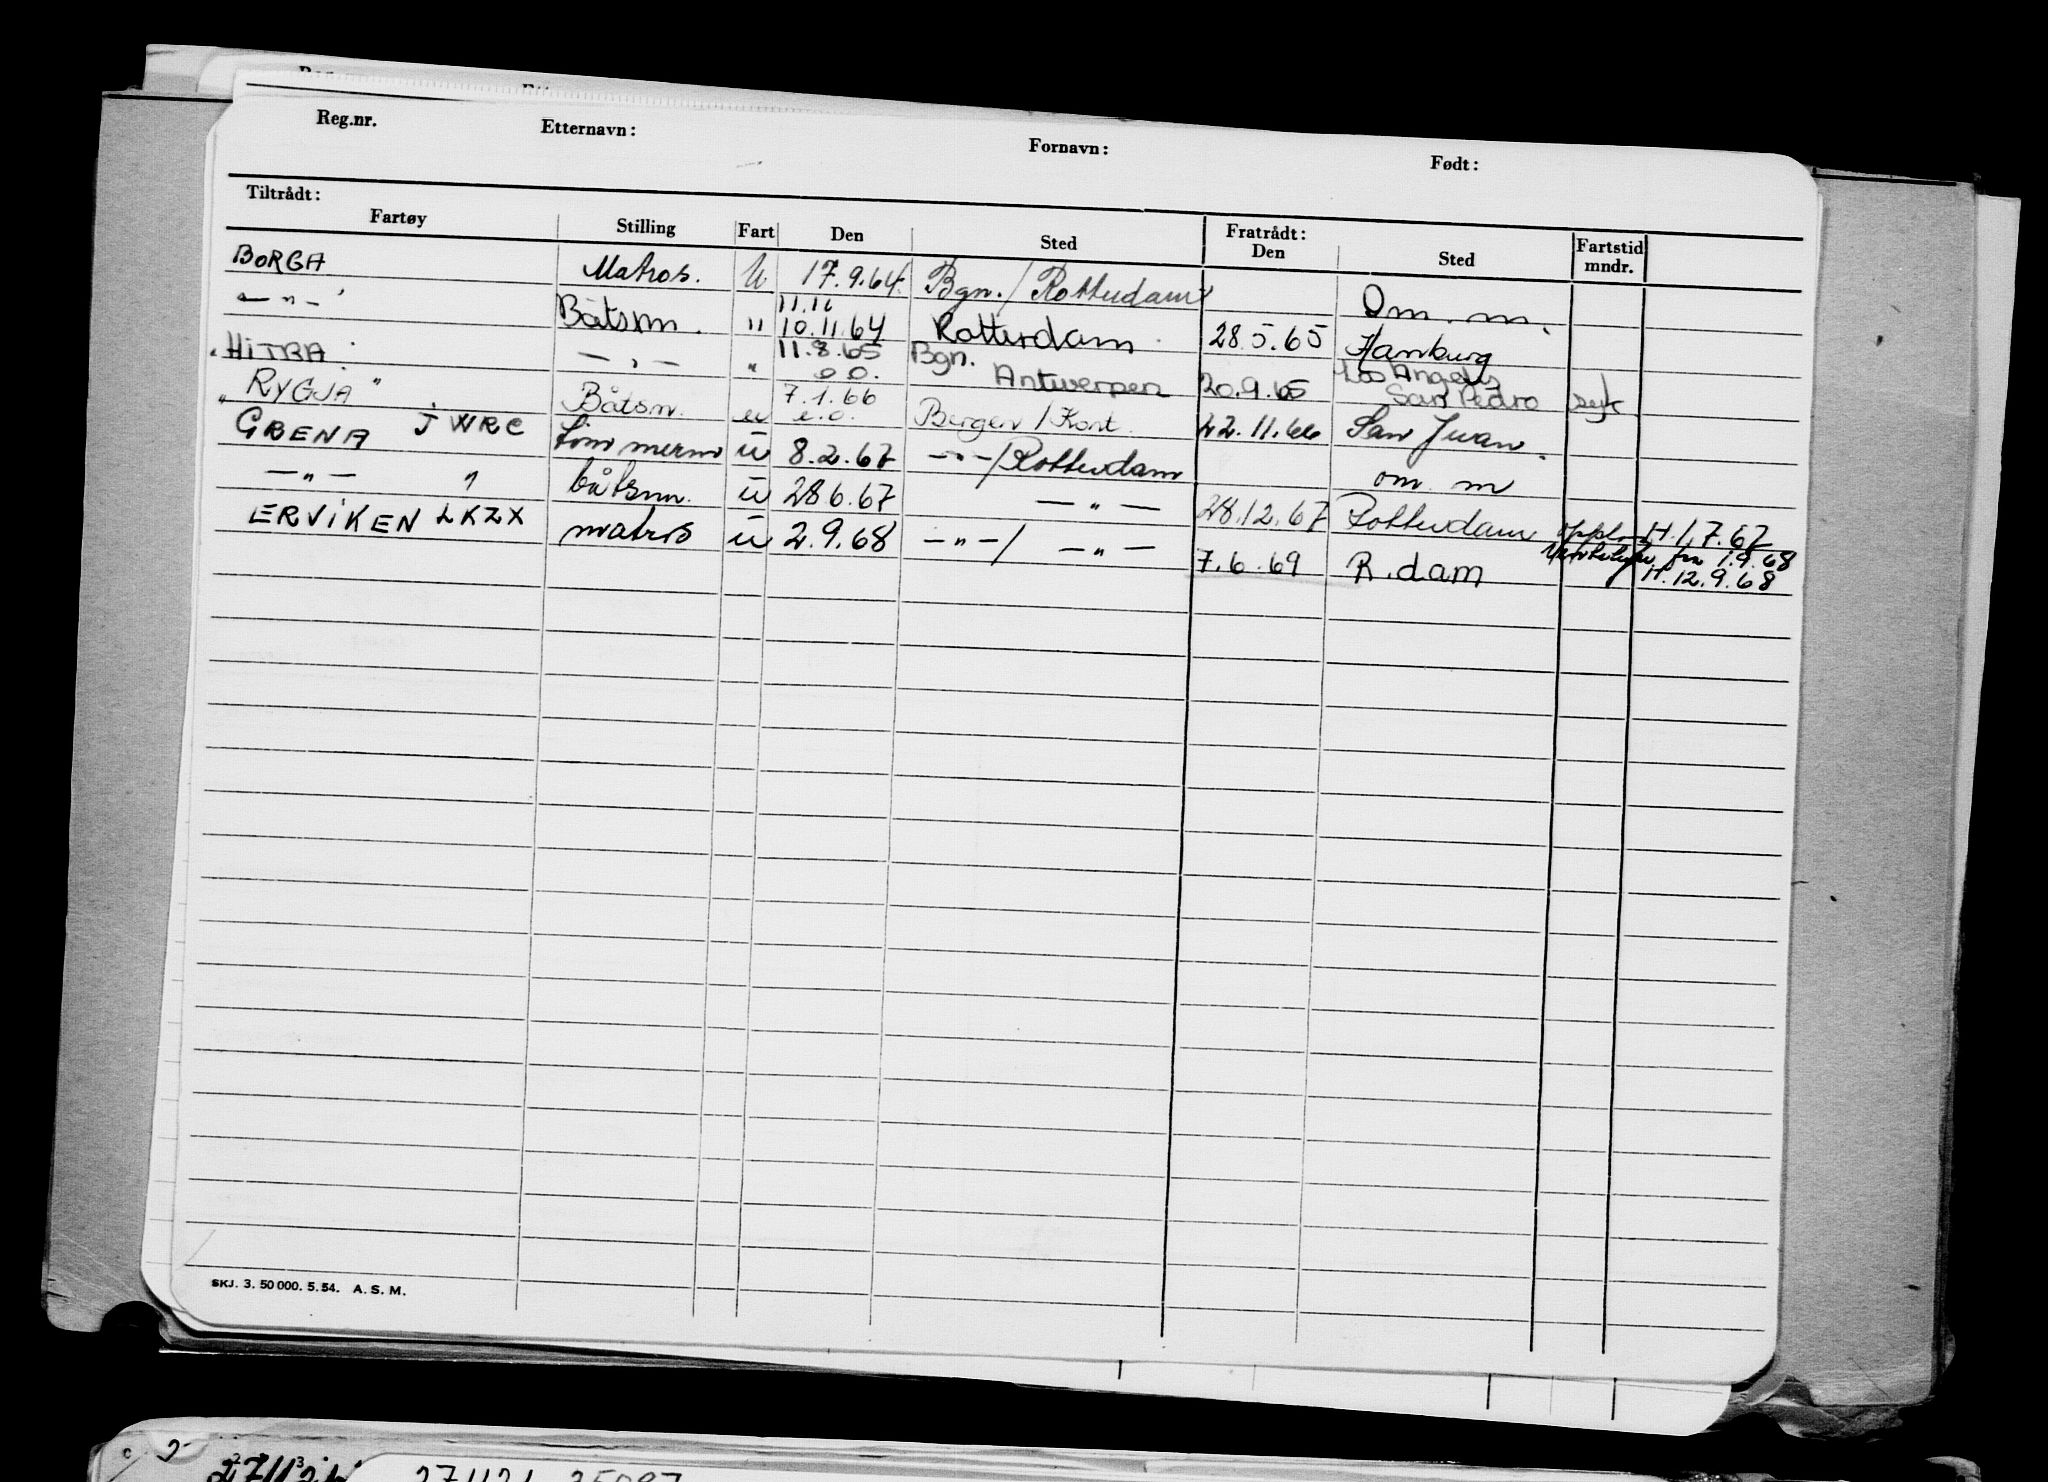 Reg.nr. Etternavn: Fornavn: Født:
Tiltrådt: Fratrådt:
Fartøy Stilling Fart Den Sted Den Sted Fartstid mndr.
BORGA Matros. U 17.9.64. Bgn. / Rotterdam Om. m.
— " — Båtsm. " 11.11 10.11.64 Rotterdam 28.5.65 Hamburg
"HITRA — " — " 11.8.65 e.o. Bgn. Antwerpen 20.9.65 Los Angeles San Pedro syk
"RYGJA" Båtsm. u 7.1.66 e.o. Bergen / Kont. 22.11.66 San Juan.
GRENA JWRC tømmerm u 8.2.67 — " — / Rotterdam om. m
— " — " båtsm. u 28.6.67 — " — 28.12.67 Rotterdam oppl. H. 1.7.67
ERVIKEN LKZX matros u 2.9.68 — " — / — " — 7.6.69 R.dam fra 1.9.68
H. 12.9.68
SKJ. 3. 50 000. 5. 54. A. S. M.
271121 35087